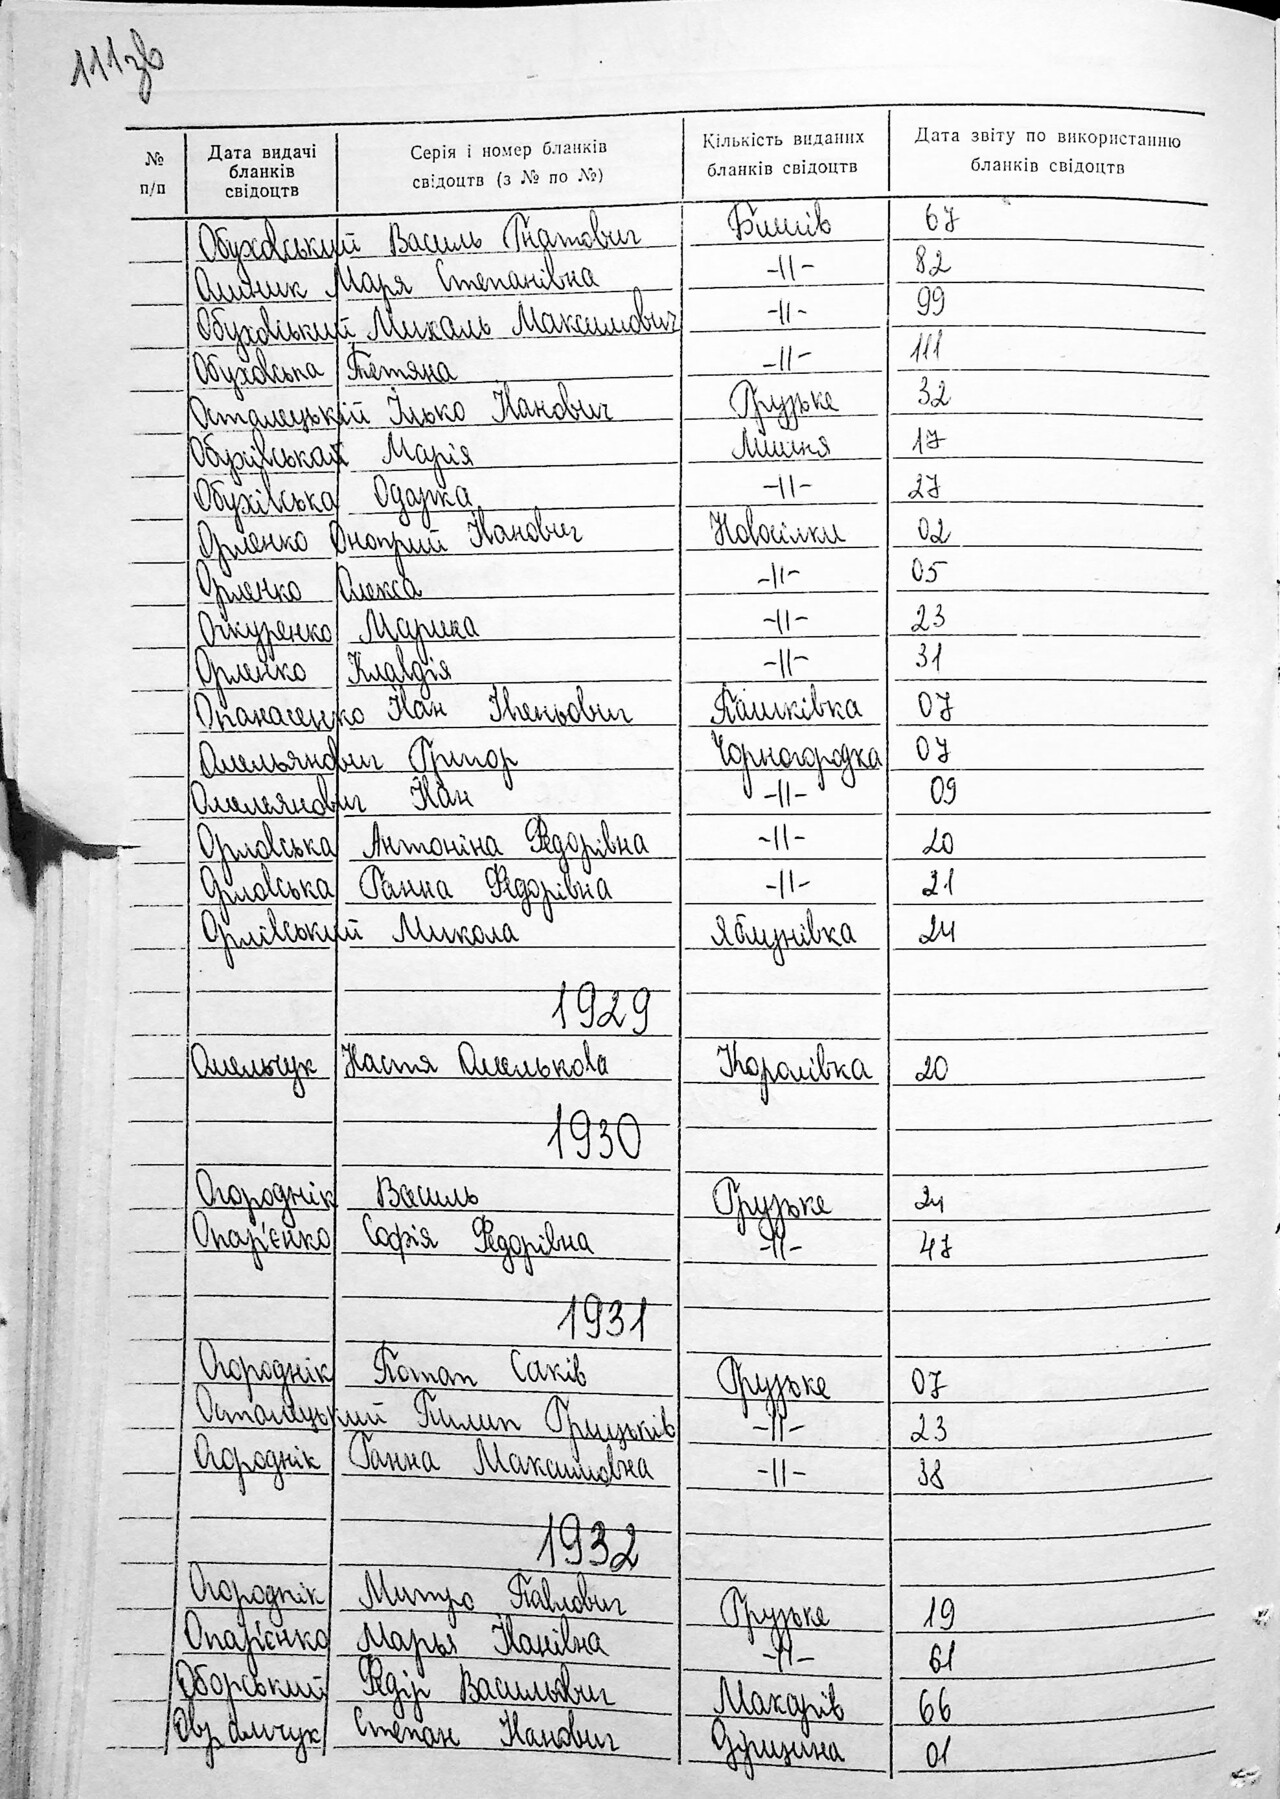 111зв
№ п/п Дата видачі бланків свідоцтв Серія і номер бланків свідоцтв (з № по №) Кількість виданих бланків свідоцтв Дата звіту по використанню бланків свідоцтв
Обуховський Василь Гнатович Бишів 67
Олиник Маря Степанівна -||- 82
Обуховський Михаль Максимович -||- 99
Обуховська Тетяна -||- 111
Осталецькій Ілько Іванович Грузьке 32
Обухівськай Марія Лишня 17
Обухівська Одарка -||- 27
Орленко Оноприй Іванович Новосілки 02
Орленко Олекса -||- 05
Очкуренко Марика -||- 23
Орленко Клавдія -||- 31
Опанасенко Іван Івеньович Пашківка 07
Омельянович Григор Чорногородка 07
Омелянович Іван -||- 09
Орловська Антоніна Федорівна -||- 20
Орловська Ганна Федорівна -||- 21
Орлівський Микола Яблунівка 24
1929
Омельчук Настя Омелькова Королівка 20
1930
Огороднік Василь Грузьке 24
Опарієнко Софія Федорівна -||- 47
1931
Огороднік Потап Саків Грузьке 07
Осталецький Пилип Грицьків -||- 23
Огороднік Ганна Максимовна -||- 38
1932
Огороднік Митро Павлович Грузьке 19
Опарієнко Марья Іванівна -||- 61
Оборський Федір Васильович Макарів 66
Степан Іванович 01